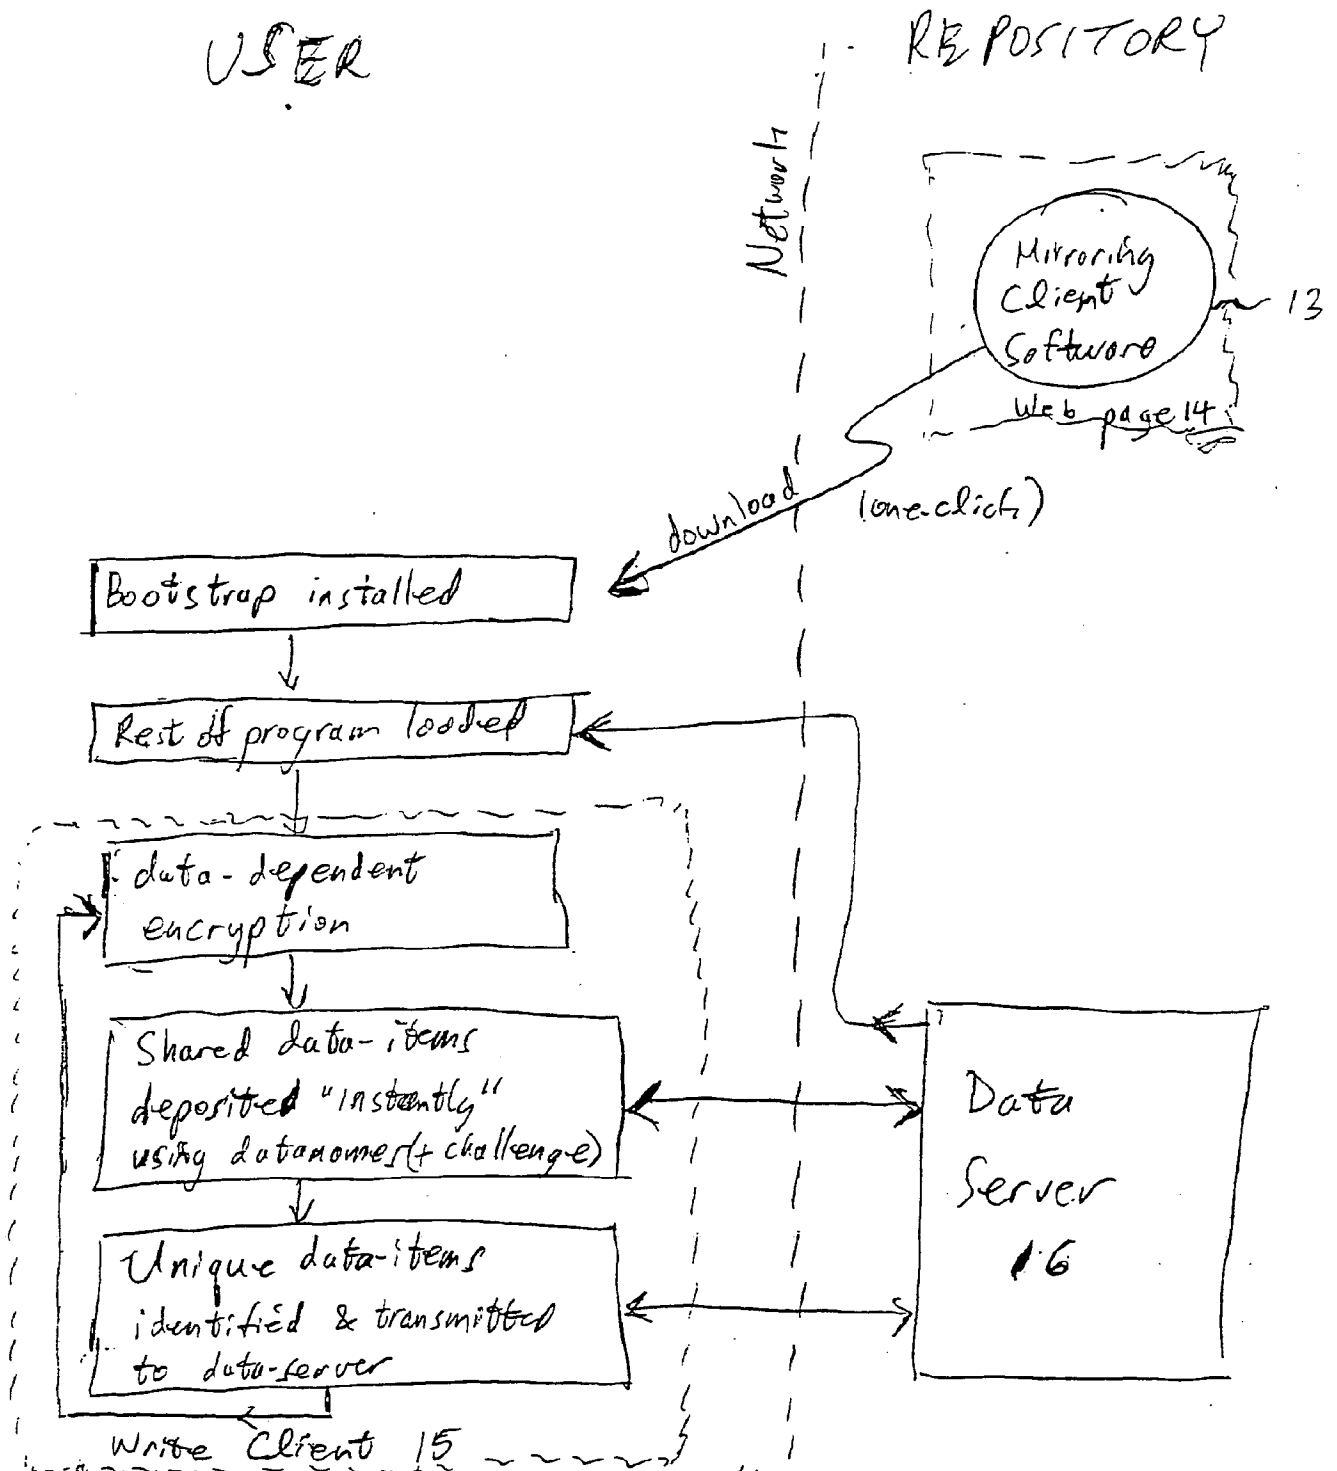 USER
REPOSITORY
Network
Mirroring
Client
Software
13
Web page 14
download
(one-click)
Bootstrap installed
Rest of program loaded
data-dependent
encryption
Shared data-items
deposited "instantly"
using datanames(+ challenge)
Unique data-items
identified & transmitted
to data-server
Write Client 15
Data
Server
16